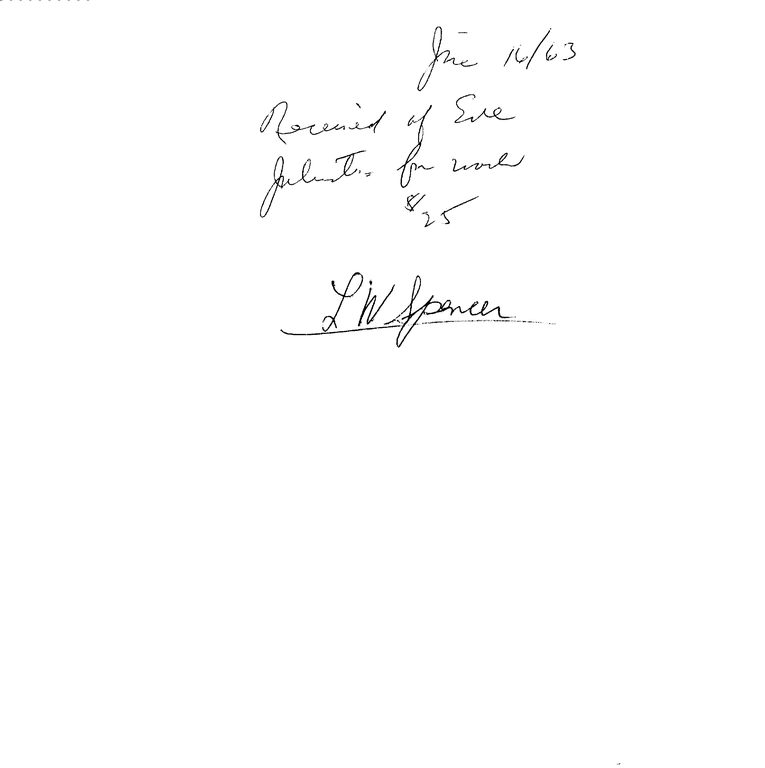 June 16/63
Received of Eve
for work
$25
L W Spencer